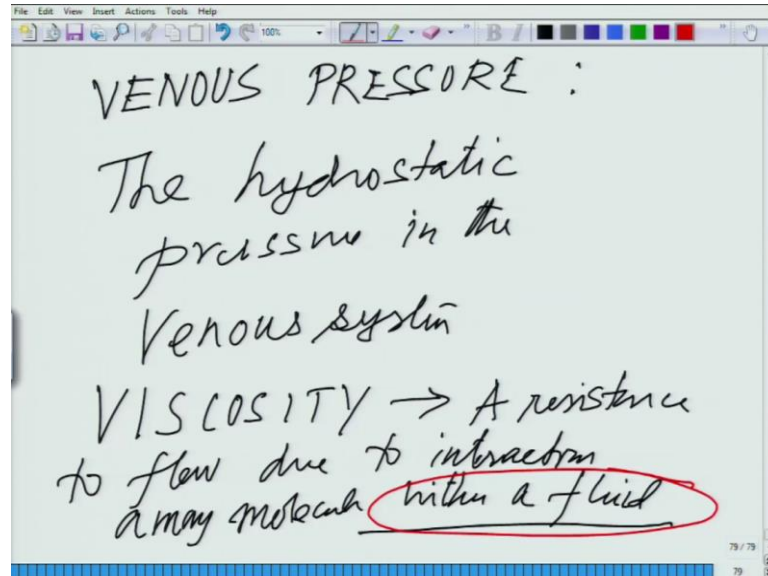 File Edit View Insert Actions Tools Help
100% B I
VENOUS PRESSURE :
The hydrostatic
pressure in the
Venous system
VISCOSITY → A resistence
to flow due to interaction
among molecule within a fluid
79 / 79
79